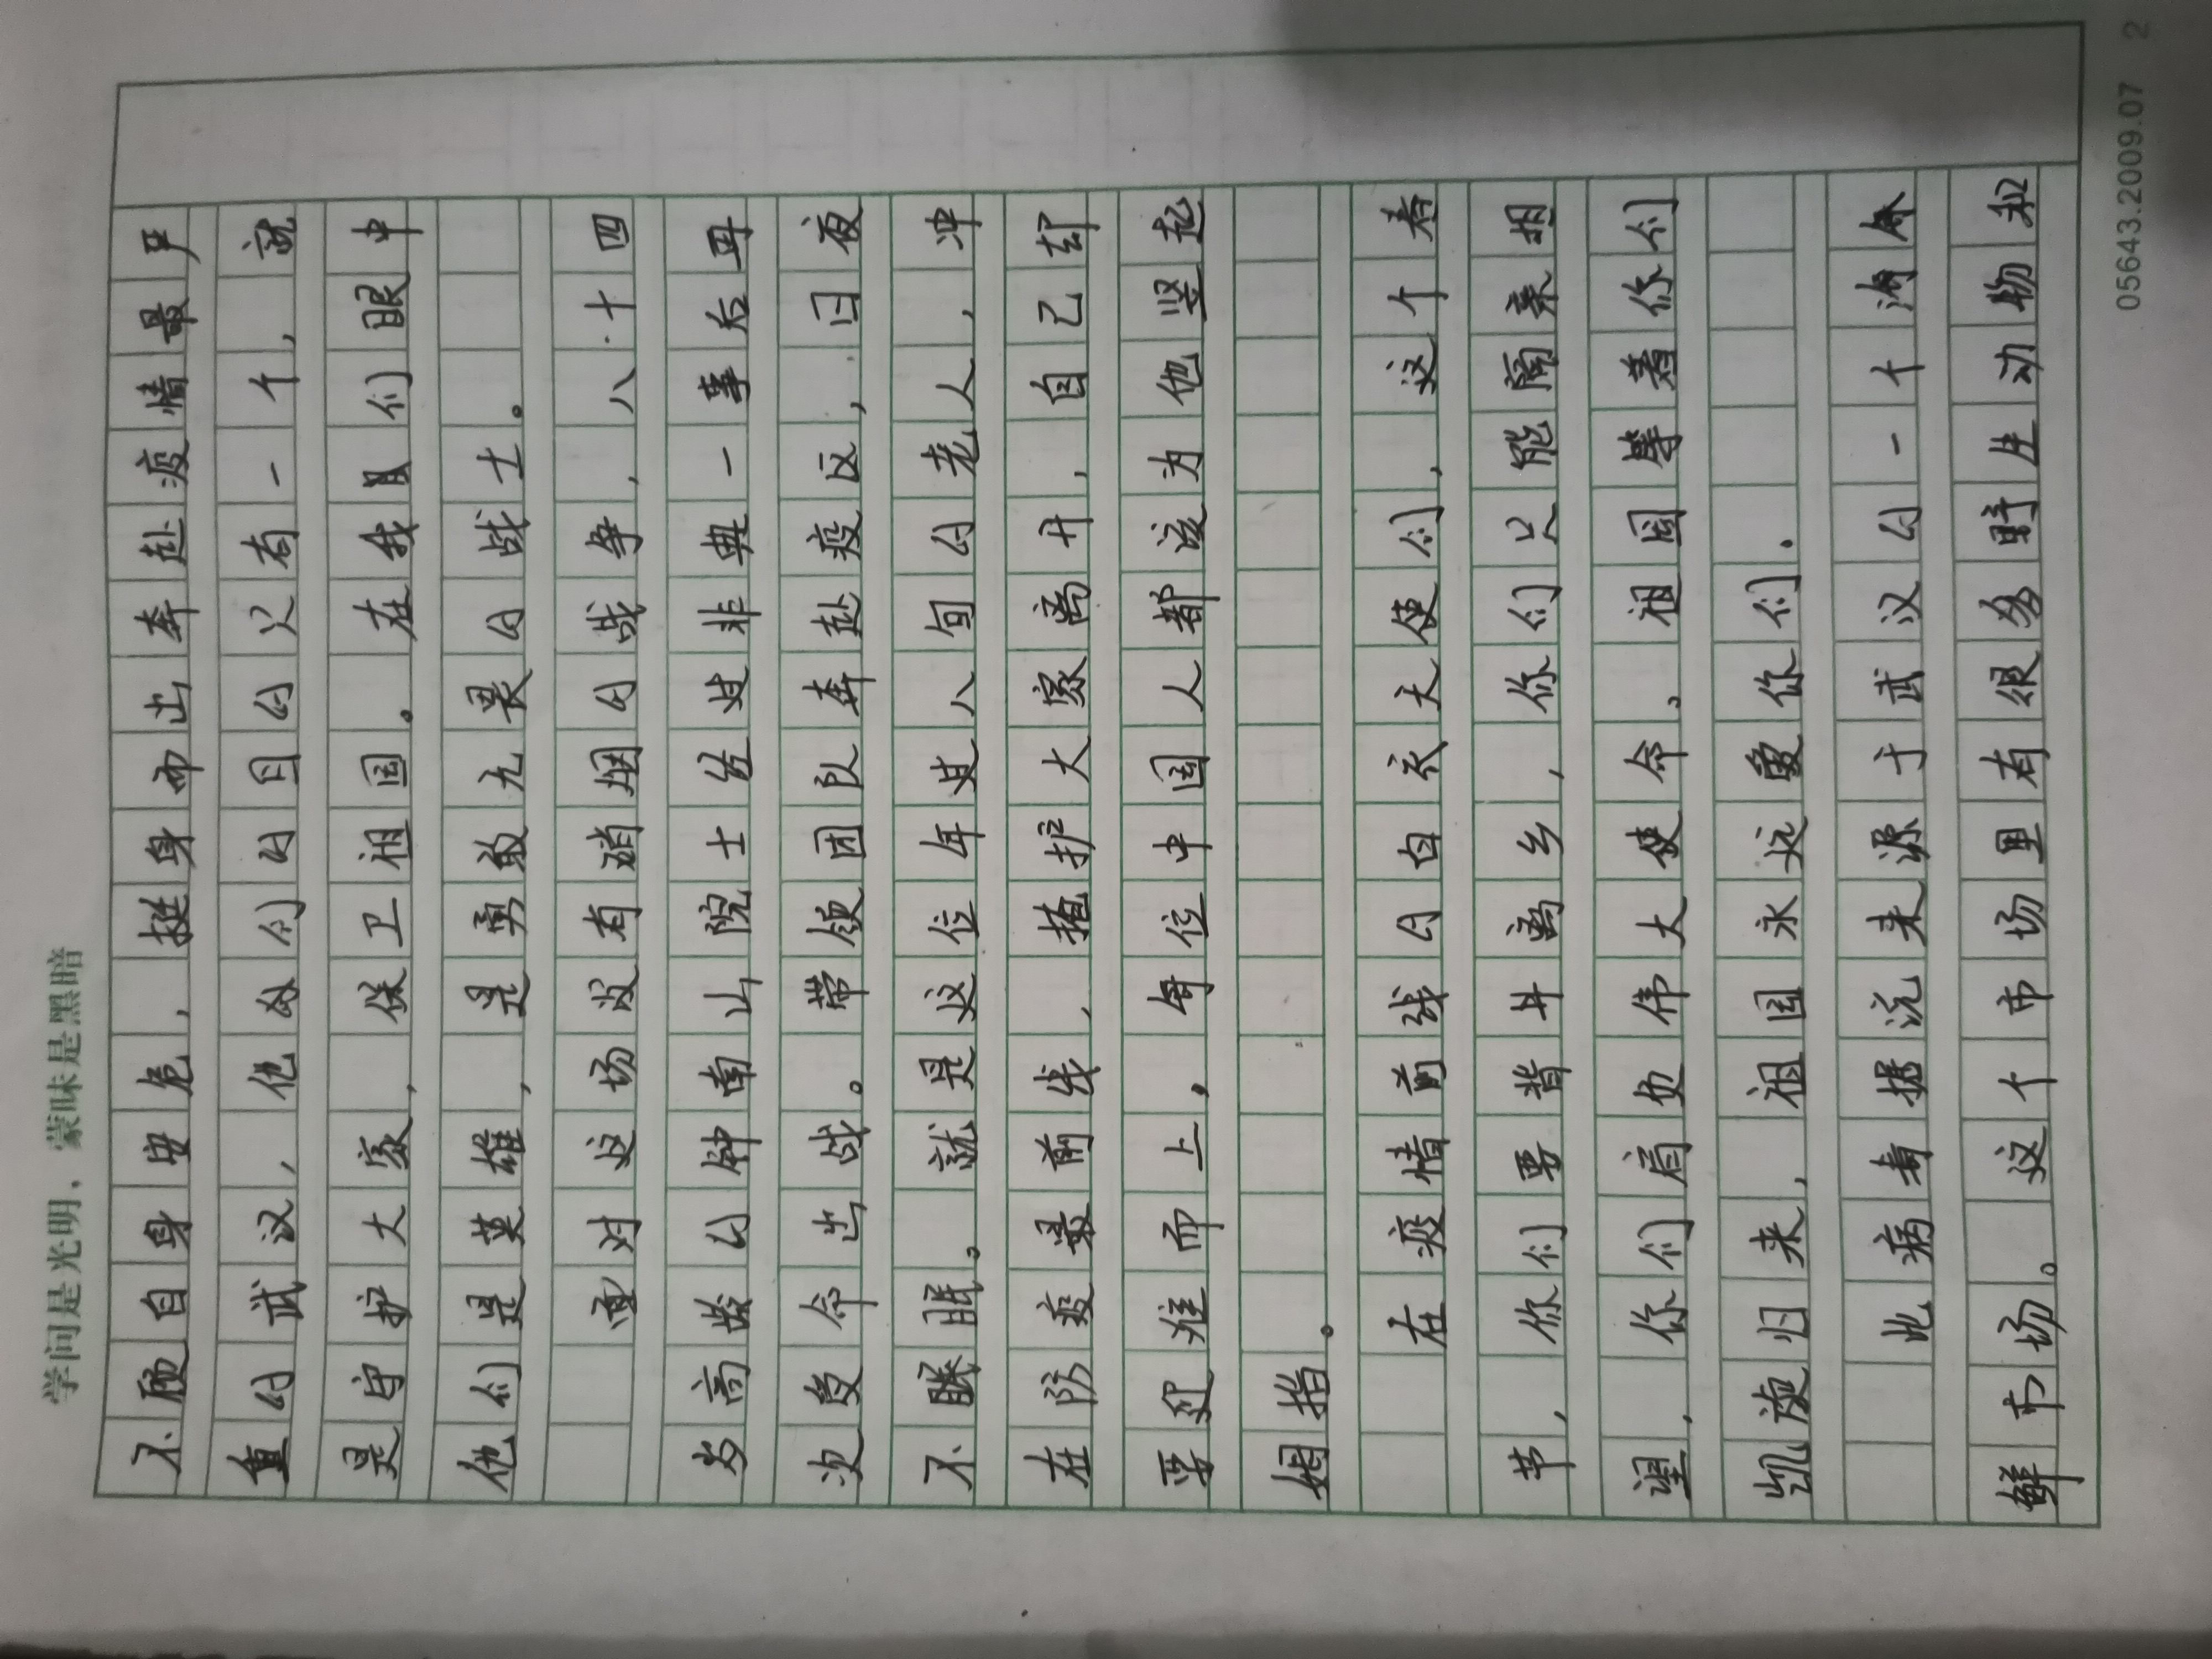 学问是光明，蒙昧是黑暗
不顾自身安危，挺身而出奔赴疫情最严
重的武汉，他们的目的只有一个，就
是守护大家，保卫祖国。在我们眼中
他们是英雄，是勇敢无畏的战士。
面对这场没有硝烟的战争，八十四
岁高龄的钟南山院士经过非典一事后再
次受命出战。带领团队奔赴疫区，日夜
不眠眠。就是这位年过八旬的老人，冲
在防疫最前线，掩护大家离开，自己却
要迎难而上，每位中国人都该为他竖起
姆指。
在疫情前线的白衣天使们，这个春
节，你们要背井离乡，你们只能隔亲相
望，你们肩负伟大使命，祖国等着你们
凯旋归来，祖国永远爱你们。
此病毒据说来源于武汉的一个海
鲜市场。这个市场里有很多野生动物和
05643.2009.07 2